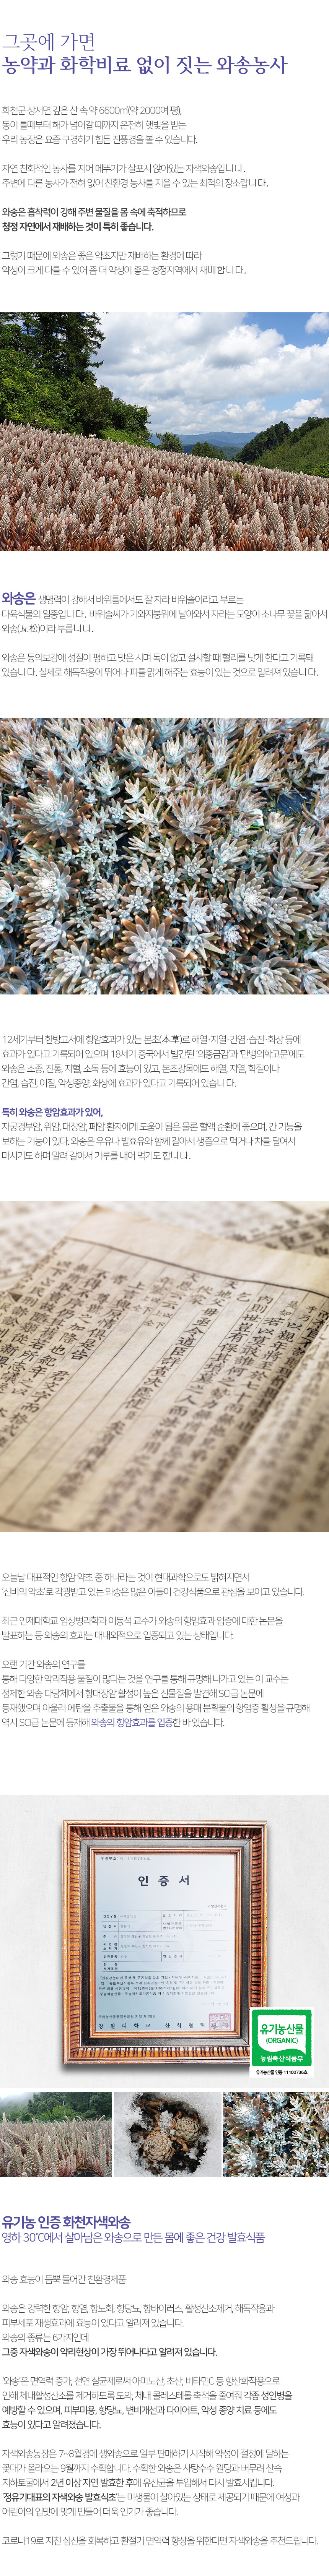 그곳에 가면
농약과 화학비료 없이 짓는 와송농사
화천군 상서면 깊은 산 속 약 6600㎡(약 2000여 평),
동이 틀때부터 해가 넘어갈 때까지 온전히 햇빛을 받는
우리 농장은 요즘 구경하기 힘든 진풍경을 볼 수 있습니다.
자연 친화적인 농사를 지어 메뚜기가 살포시 앉아있는 자색와송입니다.
주변에 다른 농사가 전혀 없어 친환경 농사를 지을 수 있는 최적의 장소랍니다.
와송은 흡착력이 강해 주변 물질을 몸 속에 축적하므로
청정 자연에서 재배하는 것이 특히 좋습니다.
그렇기 때문에 와송은 좋은 약초지만 재배하는 환경에 따라
약성이 크게 다를 수 있어 좀 더 약성이 좋은 청정지역에서 재배합니다.
와송은 생명력이 강해서 바위틈에서도 잘 자라 바위솔이라고 부르는
다육식물의 일종입니다. 바위솔씨가 기와지붕위에 날아와서 자라는 모양이 소나무 꽃을 닮아서
와송(瓦松)이라 부릅니다.
와송은 동의보감에 성질이 평하고 맛은 시며 독이 없고 설사할 때 혈리를 낫게 한다고 기록돼
있습니다. 실제로 해독작용이 뛰어나 피를 맑게 해주는 효능이 있는 것으로 알려져 있습니다.
12세기부터 한방고서에 항암효과가 있는 본초(本草)로 해열·지열·간염·습진·화상 등에
효과가 있다고 기록되어 있으며 18세기 중국에서 발간된 '의종금감'과 '만병의학고문'에도
와송은 소종, 진통, 지혈, 소독 등에 효능이 있고, 본초강목에도 해열, 지열, 학질이나
간염, 습진, 이질, 악성종양, 화상에 효과가 있다고 기록되어 있습니다.
특히 와송은 항암효과가 있어,
자궁경부암, 위암, 대장암, 폐암 환자에게 도움이 됨은 물론 혈액 순환에 좋으며, 간 기능을
보하는 기능이 있다. 와송은 우유나 발효유와 함께 갈아서 생즙으로 먹거나 차를 달여서
마시기도 하며 말려 갈아서 가루를 내어 먹기도 합니다.
오늘날 대표적인 항암 약초 중 하나라는 것이 현대과학으로도 밝혀지면서
'신비의 약초'로 각광받고 있는 와송은 많은 이들이 건강식품으로 관심을 보이고 있습니다.
최근 인제대학교 임상병리학과 이동석 교수가 와송의 항암효과 입증에 대한 논문을
발표하는 등 와송의 효과는 대내외적으로 입증되고 있는 상태입니다.
오랜 기간 와송의 연구를
통해 다양한 약리작용 물질이 많다는 것을 연구를 통해 규명해 나가고 있는 이 교수는
정제한 와송 다당체에서 항대장암 활성이 높은 신물질을 발견해 SCI급 논문에
등재했으며 아울러 에탄올 추출물을 통해 얻은 와송의 용매 분획물의 항염증 활성을 규명해
역시 SCI급 논문에 등재해 와송의 항암효과를 입증한 바 있습니다.
인 증 서
강 원 대 학 교 산 학 협 력
유기농산물
(ORGANIC)
농림축산식품부
유기농산물 인증 11100736호
유기농 인증 화천자색와송
영하 30℃에서 살아남은 와송으로 만든 몸에 좋은 건강 발효식품
와송 효능이 듬뿍 들어간 친환경제품
와송은 강력한 항암, 항염, 항노화, 항당뇨, 항바이러스, 활성산소제거, 해독작용과
피부세포 재생효과에 효능이 있다고 알려져 있습니다.
와송의 종류는 6가지인데
그중 자색와송이 약리현상이 가장 뛰어나다고 알려져 있습니다.
'와송'은 면역력 증가, 천연 살균제로써 아미노산, 초산, 비타민C 등 항산화작용으로
인해 체내활성산소를 제거하도록 도와, 체내 콜레스테롤 축적을 줄여줘 각종 성인병을
예방할 수 있으며, 피부미용, 항당뇨, 변비개선과 다이어트, 악성 종양 치료 등에도
효능이 있다고 알려졌습니다.
자색와송농장은 7~8월경에 생와송으로 일부 판매하기 시작해 약성이 절정에 달하는
꽃대가 올라오는 9월까지 수확합니다. 수확한 와송은 사탕수수 원당과 버무려 산속
지하토굴에서 2년 이상 자연 발효한 후에 유산균을 투입해서 다시 발효시킵니다.
'정유기대표의 자색와송 발효식초'는 미생물이 살아있는 상태로 제공되기 때문에 여성과
어린이의 입맛에 맞게 만들어 더욱 인기가 좋습니다.
코로나19로 지친 심신을 회복하고 환절기 면역력 향상을 위한다면 자색와송을 추천드립니다.